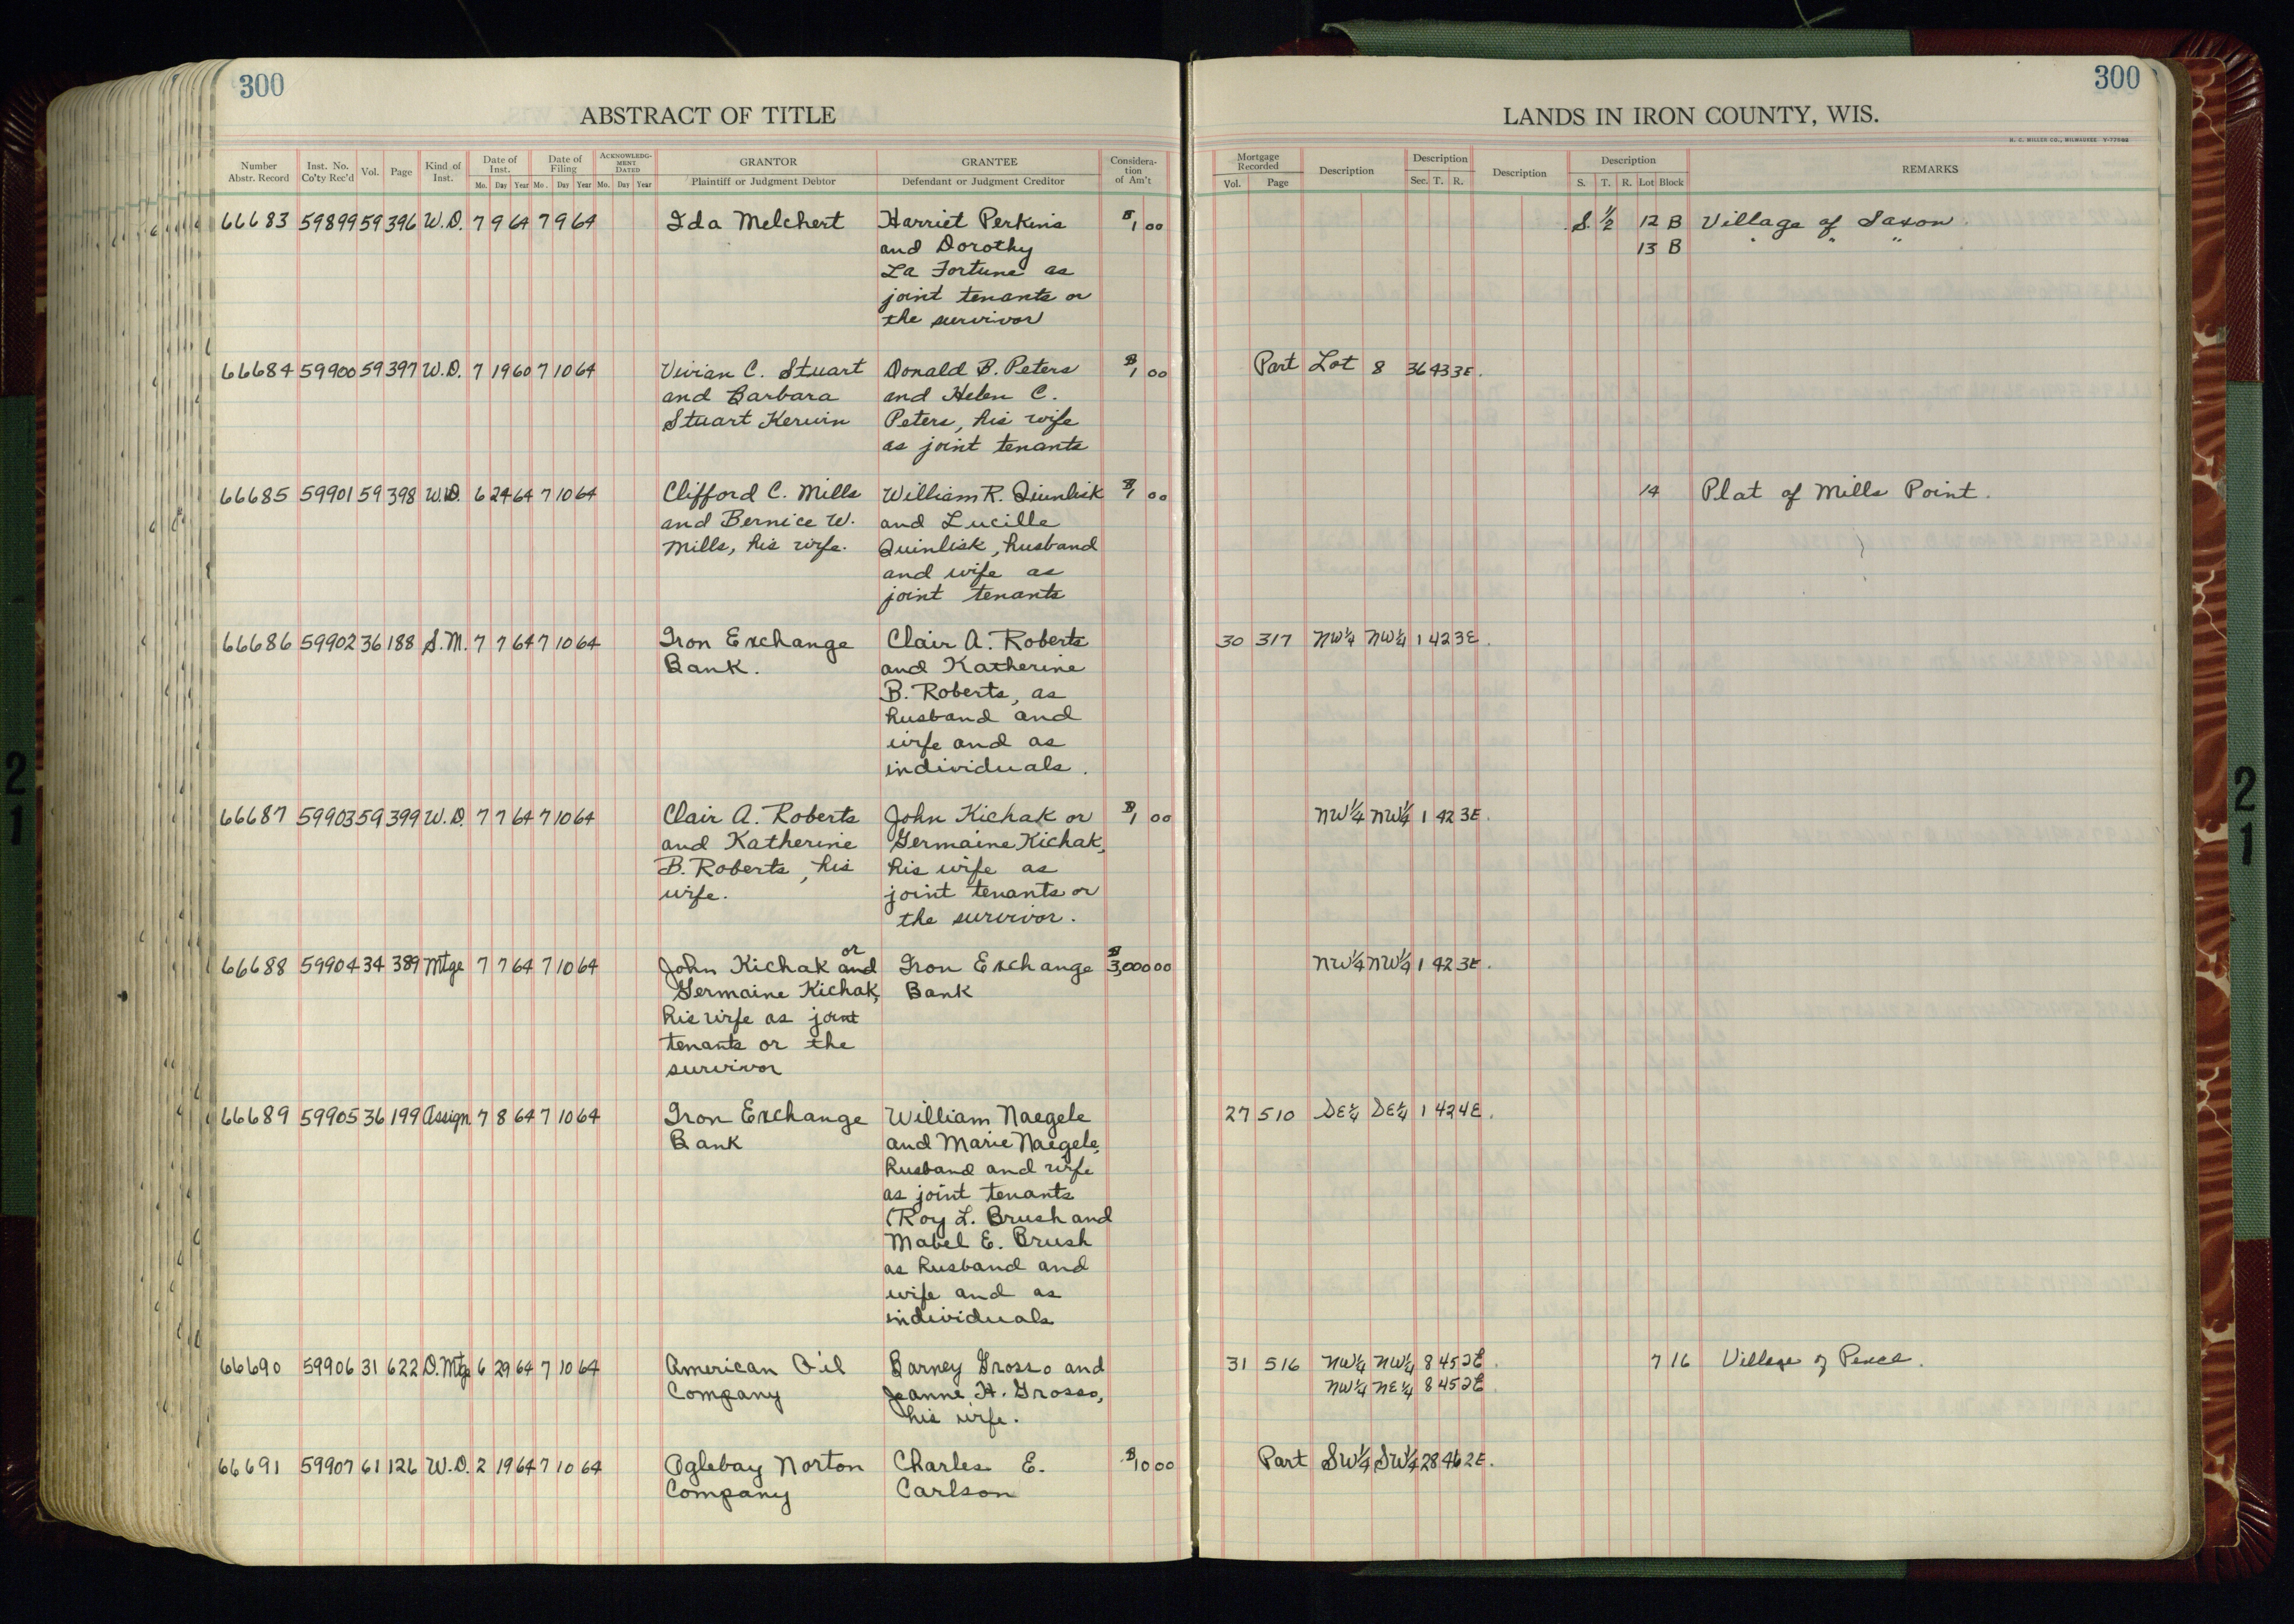 300
300
ABSTRACT OF TITLE
LANDS IN IRON COUNTY, WIS.
H. C. MILLER CO., MILWAUKEE
Number Abstr. Record Inst. No. Co'ty Rec'd Vol. Page Kind of Inst. Date of Inst. Mo. Day Year Date of Filing Mo. Day Year ACKNOWLEDGMENT DATED Mo. Day Year GRANTOR Plaintiff or Judgment Debtor GRANTEE Defendant or Judgment Creditor Consideration of Am't
Mortgage Recorded Vol. Page Description Description Sec. T. R. Description Description S. T. R. Lot Block REMARKS
66683 59899 59 396 W.D. 7 9 64 7 9 64 Ida Melchert Harriet Perkins $1 00 S. 1/2 12 B Village of Saxon
and Dorothy 13 B " " "
La Fortune as
joint tenants or
the survivor
66684 59900 59 397 W.D. 7 19 60 7 10 64 Vivian C. Stuart Donald B. Peters $1 00 Part Lot 8 36 43 3E.
and Barbara and Helen C.
Stuart Kerwin Peters, his wife
as joint tenants
66685 59901 59 398 W.D. 6 24 64 7 10 64 Clifford C. Mills William R. Quinlisk $1 00 14 Plat of Mills Point.
and Bernice W. and Lucille
Mills, his wife. Quinlisk, husband
and wife as
joint tenants
66686 59902 36 188 S.M. 7 7 64 7 10 64 Iron Exchange Clair A. Roberts 30 317 NW1/4 NW1/4 1 42 3E.
Bank. and Katherine
B. Roberts, as
husband and
wife and as
individuals.
66687 59903 59 399 W.D. 7 7 64 7 10 64 Clair A. Roberts John Kichak or $1 00 NW1/4 NW1/4 1 42 3E.
and Katherine Germaine Kichak,
B. Roberts, his his wife as
wife. joint tenants or
the survivor.
66688 59904 34 389 Mtge 7 7 64 7 10 64 John Kichak and or Iron Exchange $3,000 00 NW1/4 NW1/4 1 42 3E.
Germaine Kichak, Bank
his wife as joint
tenants or the
survivor
66689 59905 36 199 Assign 7 8 64 7 10 64 Iron Exchange William Naegele 27 510 SE1/4 SE1/4 1 42 4E.
Bank and Marie Naegele,
husband and wife
as joint tenants
(Roy L. Brush and
Mabel E. Brush
as husband and
wife and as
individuals
66690 59906 31 622 D.Mtge 6 29 64 7 10 64 American Oil Barney Grosso and 31 516 NW1/4 NW1/4 8 45 2E. 7 16 Village of Pence.
Company Jeanne H. Grosso, NW1/4 NE1/4 8 45 2E.
his wife.
66691 59907 61 126 W.D. 2 19 64 7 10 64 Oglebay Norton Charles E. $10 00 Part SW1/4 SW1/4 28 46 2E.
Company Carlson
21
21